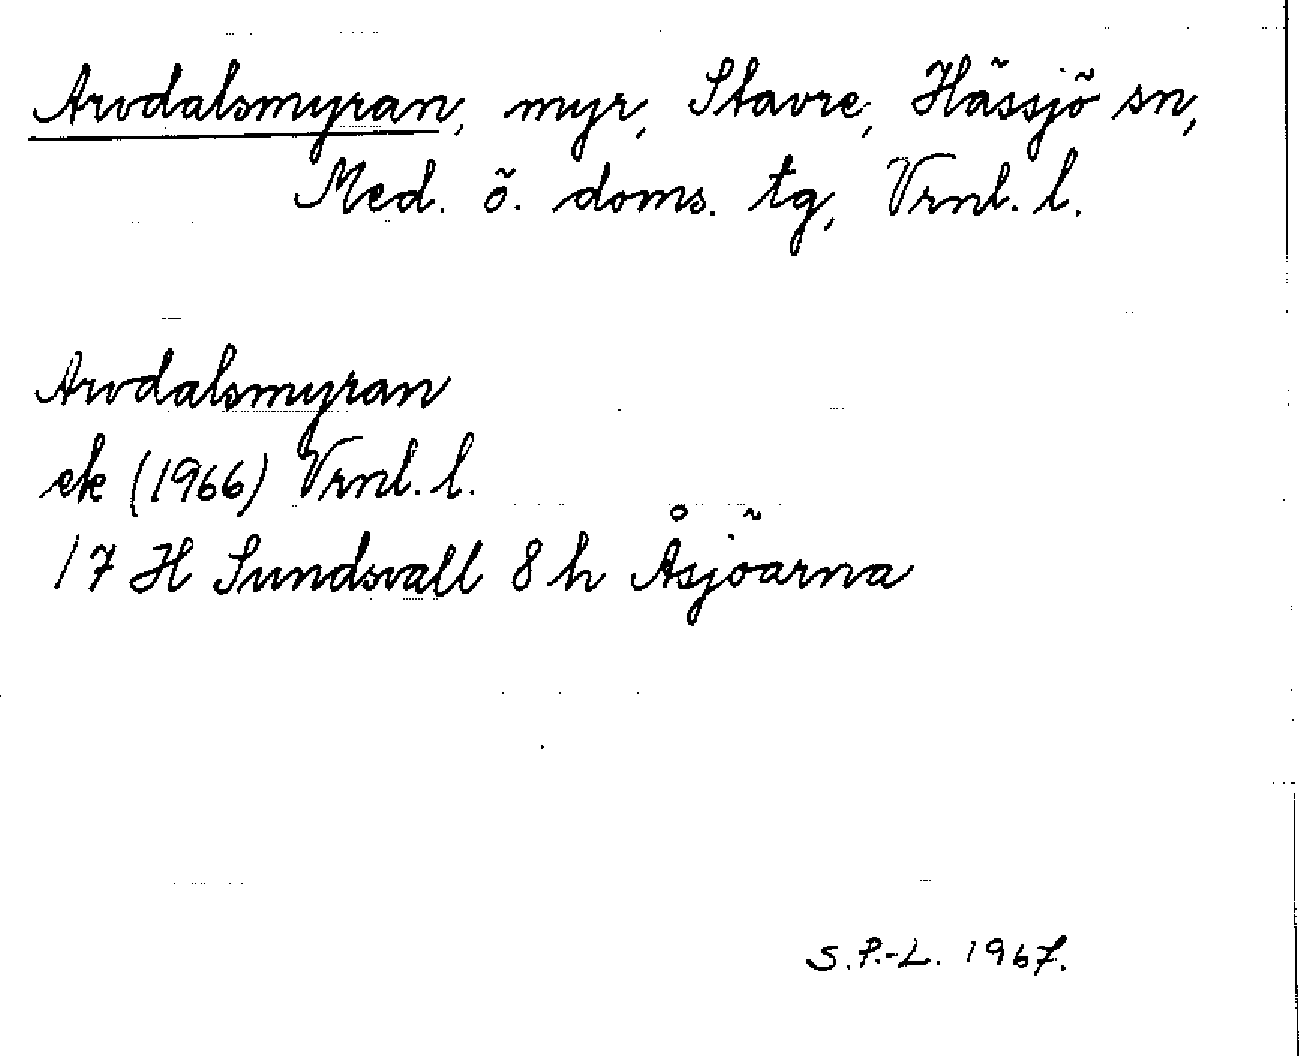 Arvdalsmyran, myr, Stavre, Hässjö sn,
Med. ö. doms. tg, Vrnl. l.
Arvdalsmyran
ek (1966) Vrnl. l.
17 H Sundsvall 8 h Åsjöarna
S.P.-L. 1967.